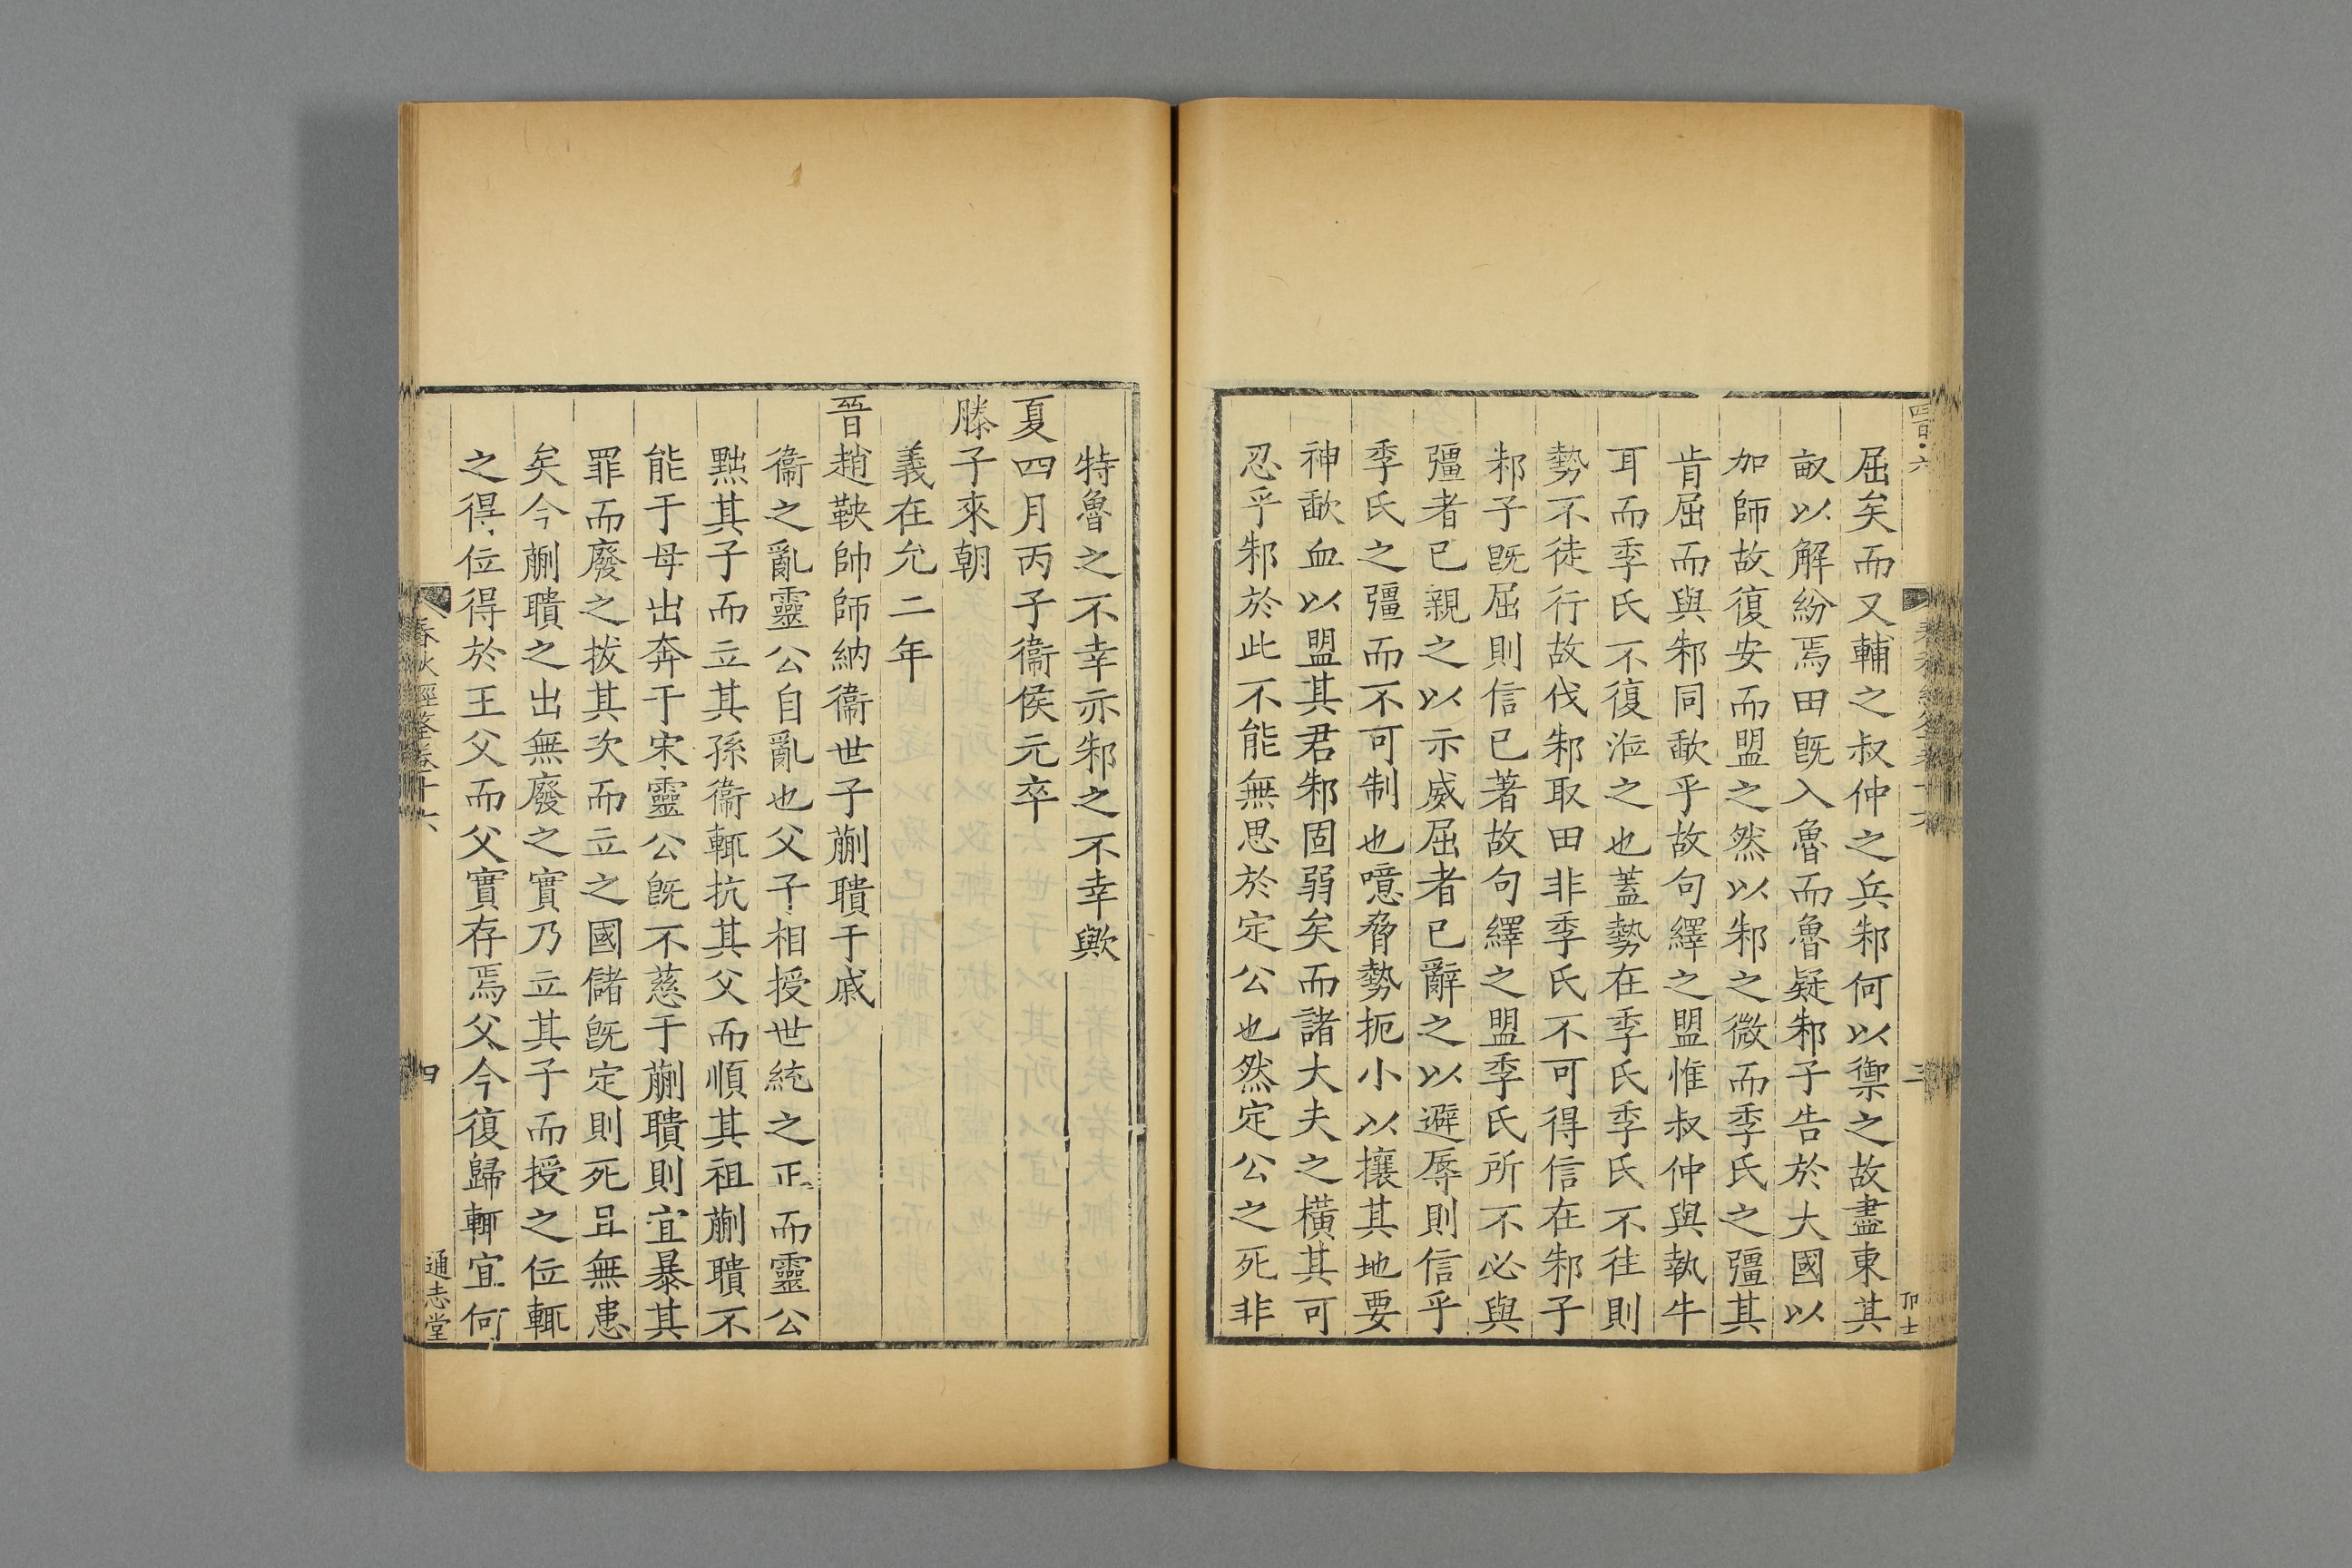 屈矣而又輔之叔仲之兵邾何以禦之故盡東其
畝以解紛焉田旣入魯而魯疑邾子告於大國以
加師故復安而盟之然以邾之微而季氏之彊其
肯屈而與邾同歃乎故句繹之盟惟叔仲與執牛
耳而季氏不復涖之也蓋勢在季氏季氏不往則
勢不徒行故伐邾取田非季氏不可得信在邾子
邾子旣屈則信已著故句繹之盟季氏所不必與
彊者已親之以示威屈者已辭之以避辱則信乎
季氏之彊而不可制也噫脅勢扼小以攘其地要
神歃血以盟其君邾固弱矣而諸大夫之橫其可
忍乎邾於此不能無思於定公也然定公之死非
特魯之不幸亦邾之不幸歟
夏四月丙子衞侯元卒
滕子來朝
義在允二年
晉趙鞅帥師納衞世子蒯聵于戚
衞之亂靈公自亂也父子相授世統之正而靈公
黜其子而立其孫衞輒抗其父而順其祖蒯聵不
能于母出奔于宋靈公旣不慈于蒯聵則宜暴其
罪而廢之拔其次而立之國儲旣定則死且無患
矣今蒯聵之出無廢之實乃立其子而授之位輒
之得位得於王父而父實存焉父今復歸輒宜何
春秋經筌卷十六
四
通志堂